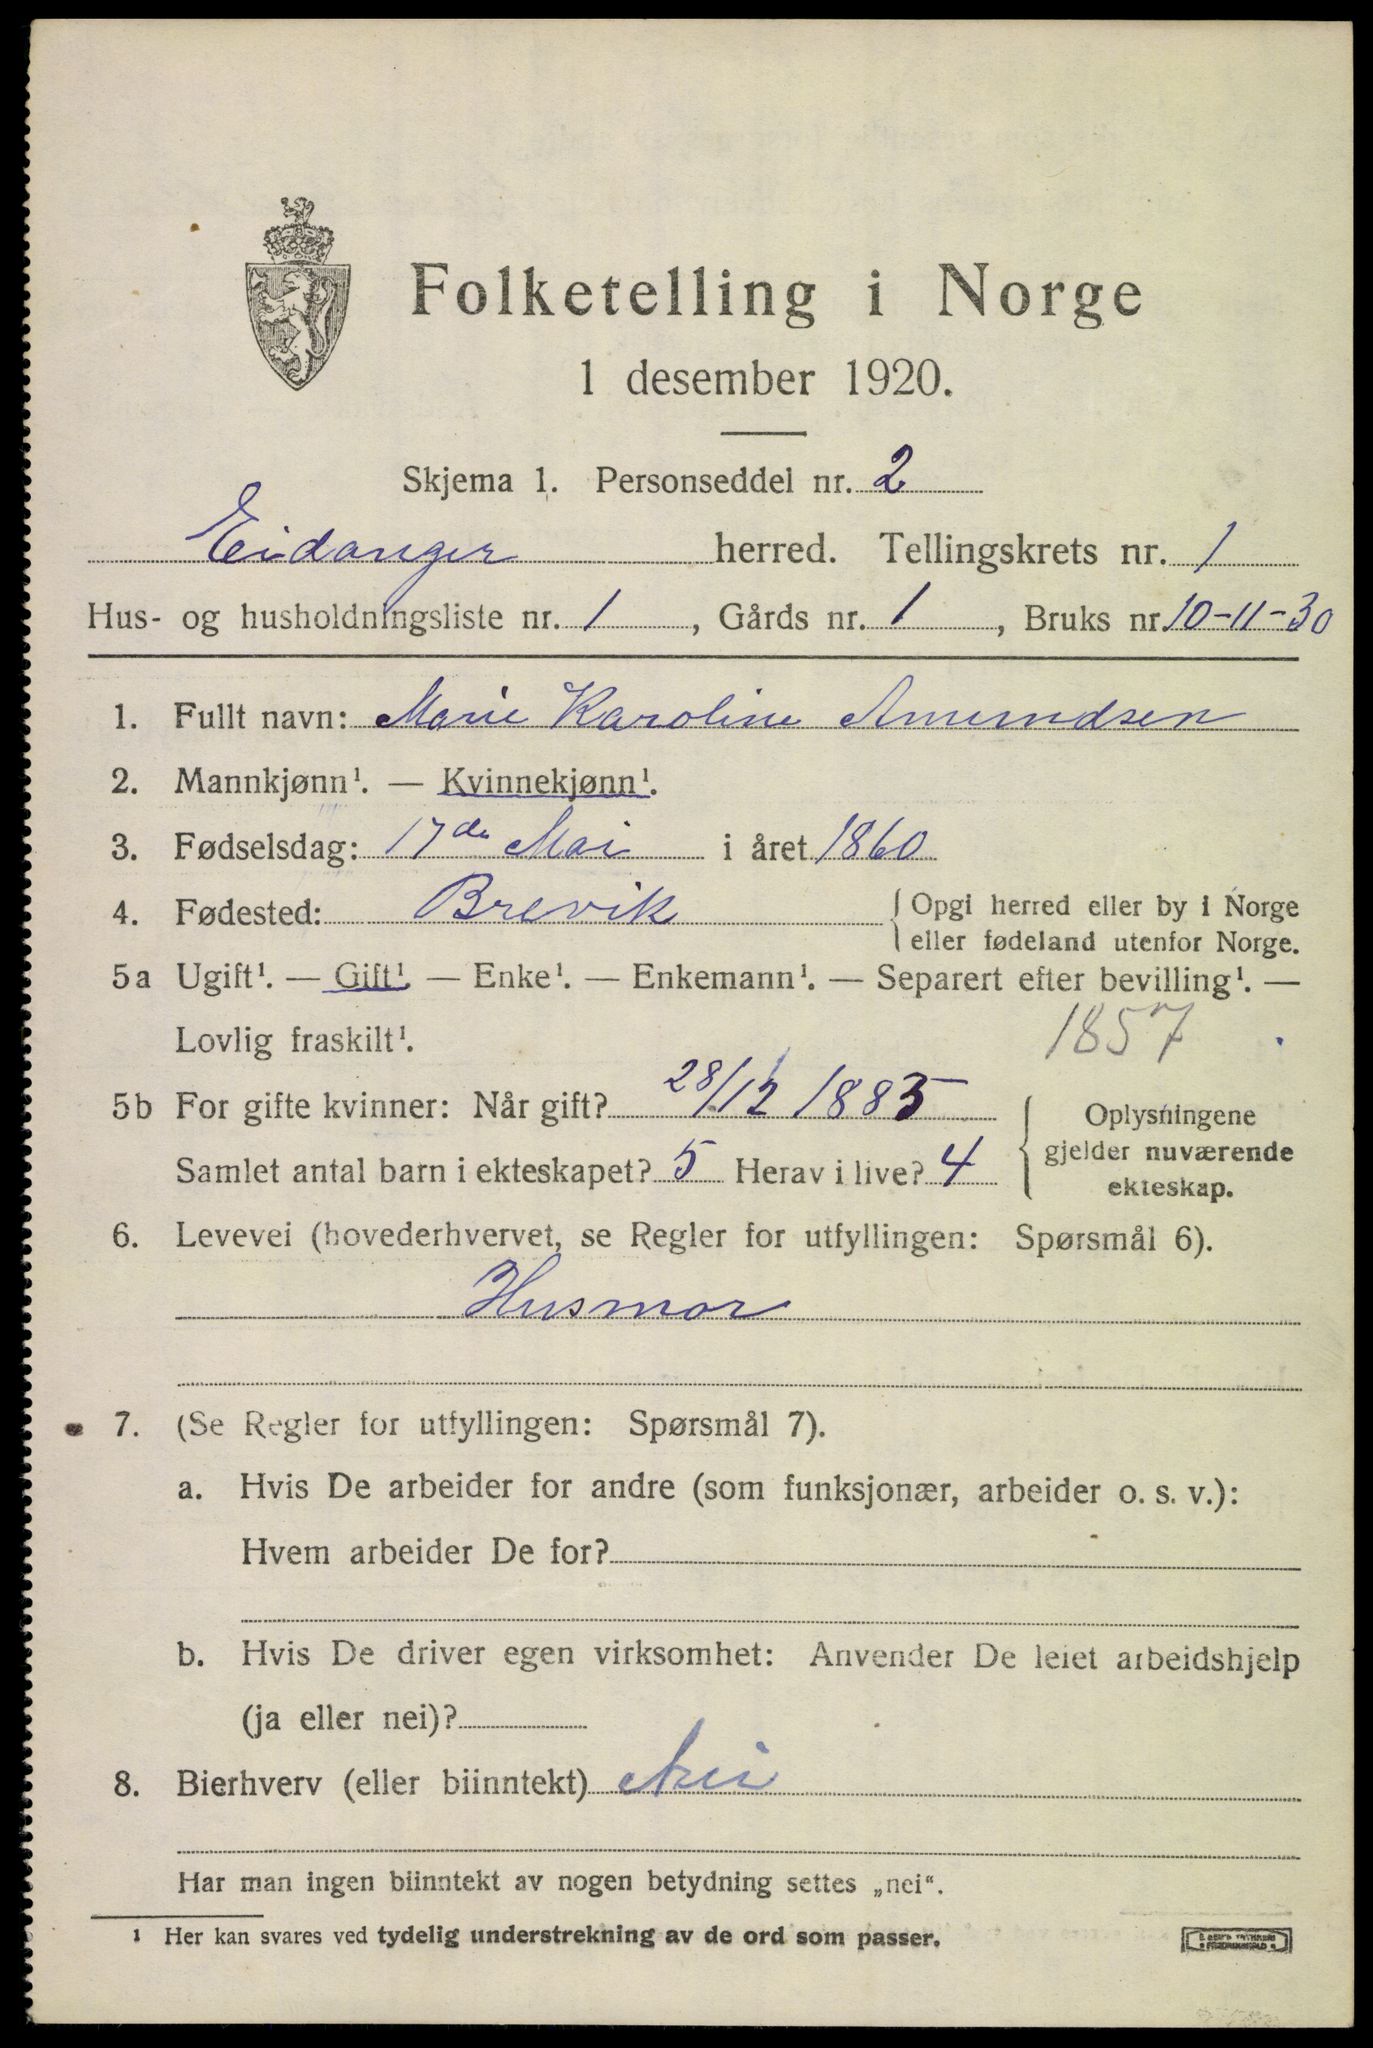 Folketelling i Norge
1 desember 1920.
Skjema 1. Personseddel nr. 2
Eidanger herred. Tellingskrets nr. 1
Hus- og husholdningsliste nr. 1, Gårds nr. 1, Bruks nr. 10-11-30
1. Fullt navn: Marie Karoline Amundsen
2. Mannkjønn¹. — Kvinnekjønn¹.
3. Fødselsdag: 17de Mai i året 1860
4. Fødested: Brevik { Opgi herred eller by i Norge
eller fødeland utenfor Norge.
5a Ugift¹. — Gift¹. — Enke¹. — Enkemann¹. — Separert efter bevilling¹. —
Lovlig fraskilt¹. 1857
5b For gifte kvinner: Når gift? 28/12 1885
Samlet antal barn i ekteskapet? 5 Herav i live? 4
{ Oplysningene
gjelder nuværende
ekteskap.
6. Levevei (hovederhvervet, se Regler for utfyllingen: Spørsmål 6).
Husmor
7. (Se Regler for utfyllingen: Spørsmål 7).
a. Hvis De arbeider for andre (som funksjonær, arbeider o. s. v.):
Hvem arbeider De for?
b. Hvis De driver egen virksomhet: Anvender De leiet arbeidshjelp
(ja eller nei)?
8. Bierhverv (eller biinntekt) Nei
Har man ingen biinntekt av nogen betydning settes „nei“.
¹ Her kan svares ved tydelig understrekning av de ord som passer.